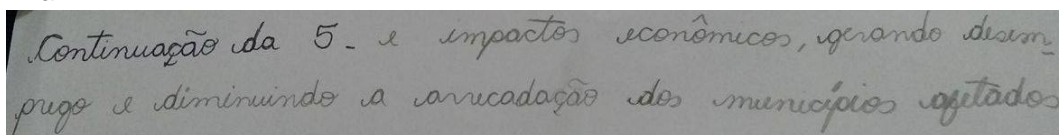 Continuação da 5- e impactos econômicos, gerando desem_
prego e diminuindo a arrecadação dos municípios afetados